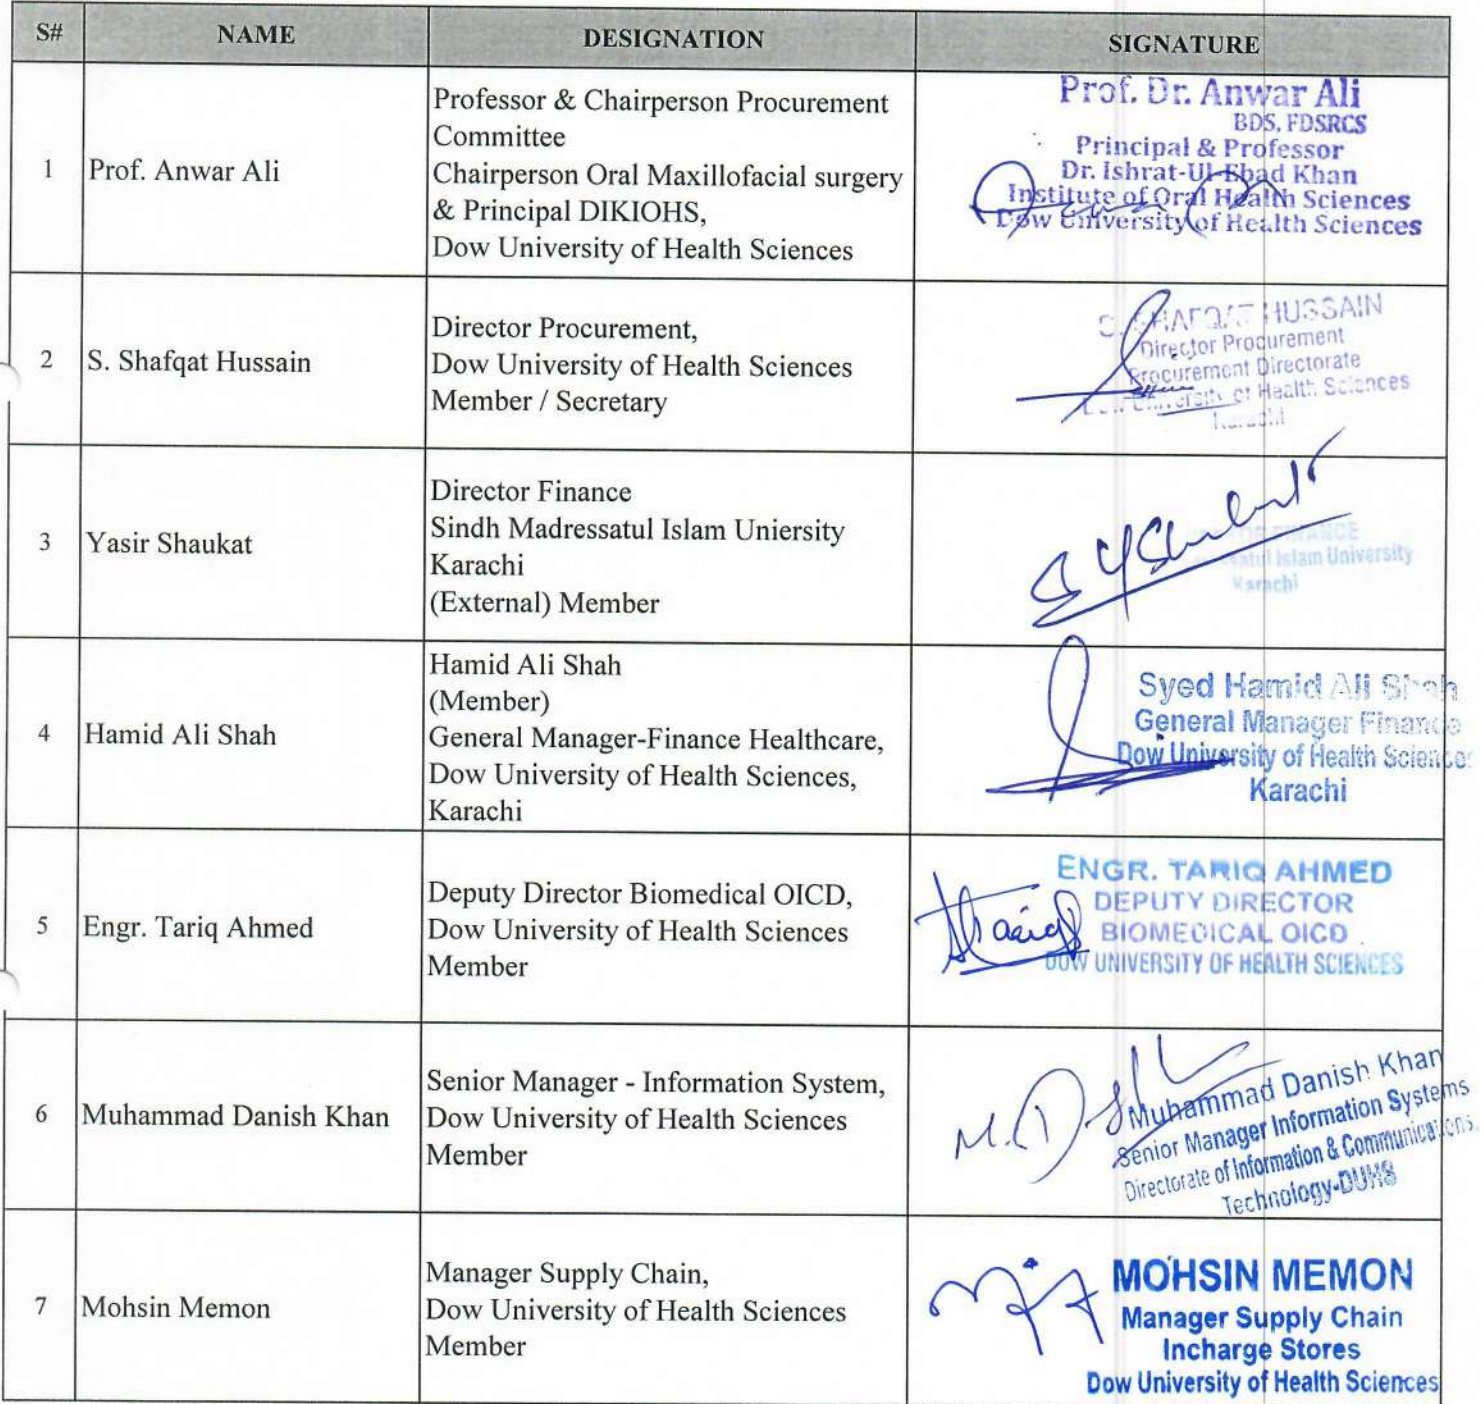 S# NAME DESIGNATION SIGNATURE
1
Prof. Anwar Ali
Professor & Chairperson Procurement
Committee
Chairperson Oral Maxillofacial surgery
& Principal DIKIOHS,
Dow University of Health Sciences
Prof. Dr. Anwar Ali
BDS, FDSRCS
Principal & Professor
Dr. Ishrat-Ul-Ebad Khan
Institute of Oral Health Sciences
Dow University of Health Sciences
2
S. Shafqat Hussain
Director Procurement,
Dow University of Health Sciences
Member / Secretary
S. SHAFQAT HUSSAIN
Director Procurement
Procurement Directorate
Dow University of Health Sciences
Karachi
3
Yasir Shaukat
Director Finance
Sindh Madressatul Islam Uniersity
Karachi
(External) Member
FINANCE
Islam University
Karachi
4
Hamid Ali Shah
Hamid Ali Shah
(Member)
General Manager-Finance Healthcare,
Dow University of Health Sciences,
Karachi
Syed Hamid Ali Shah
General Manager Finance
Dow University of Health Sciences
Karachi
5
Engr. Tariq Ahmed
Deputy Director Biomedical OICD,
Dow University of Health Sciences
Member
ENGR. TARIQ AHMED
DEPUTY DIRECTOR
BIOMEDICAL OICD
DOW UNIVERSITY OF HEALTH SCIENCES
6
Muhammad Danish Khan
Senior Manager - Information System,
Dow University of Health Sciences
Member
Muhammad Danish Khan
Senior Manager Information Systems
Directorate of Information & Communications
Technology-DUHS
7
Mohsin Memon
Manager Supply Chain,
Dow University of Health Sciences
Member
MOHSIN MEMON
Manager Supply Chain
Incharge Stores
Dow University of Health Sciences